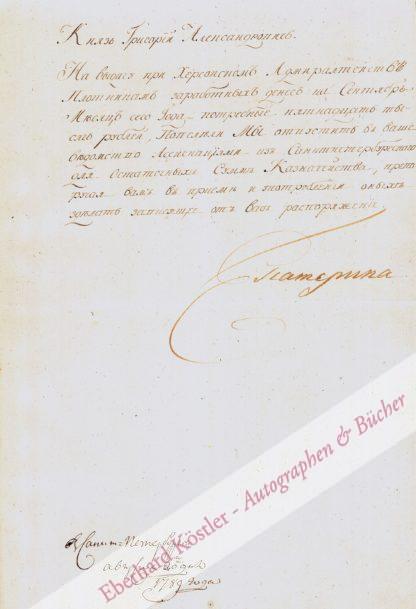 Князь Григорий Александровичь.
На выдачу при Херсонскомъ Адмиралтействѣ
Плотникамъ заработныхъ денегъ на Сентябрь
Мѣсяцъ сего Года, потребные пятнадцать ты-
сячь рублей, Повелѣли Мы отпустить въ ваше
вѣдомство Ассигнациями изъ Санктпетербургскаго
для Остаточныхъ Суммъ Казначейства, предо-
ставляя вамъ въ приемѣ и употреблении оныхъ
зависящие отъ Васъ распоряжении.
Екатерина
Въ Санктъ-Петербургѣ
1789 года
Eberhard Köstler - Autographen & Bücher